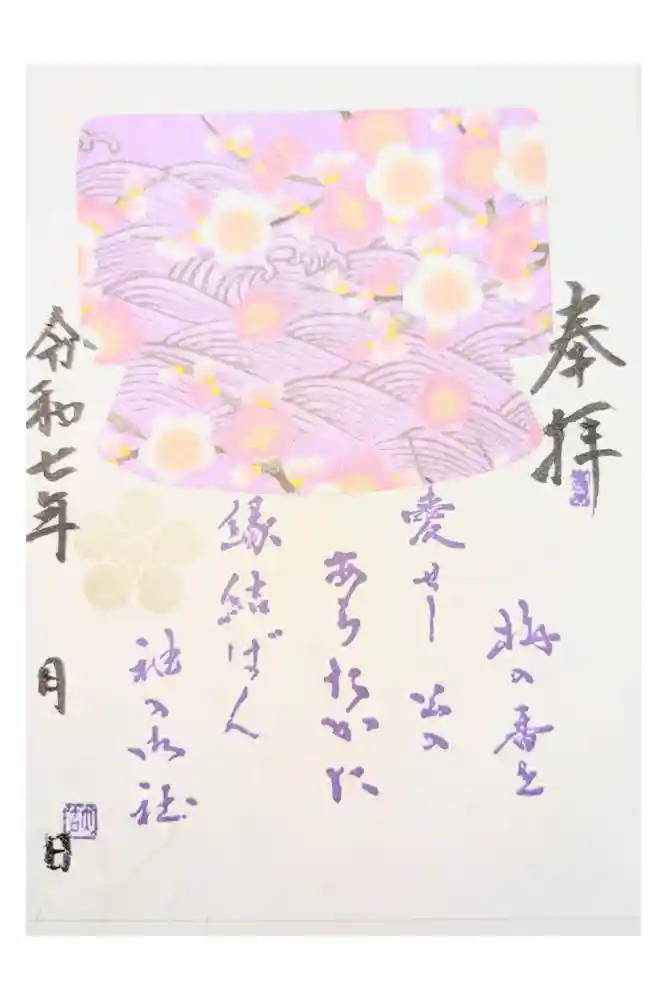 奉拝
梅の香を
愛せし公の
あらたかに
縁結ばん
袖の御社
令和七年 月 日